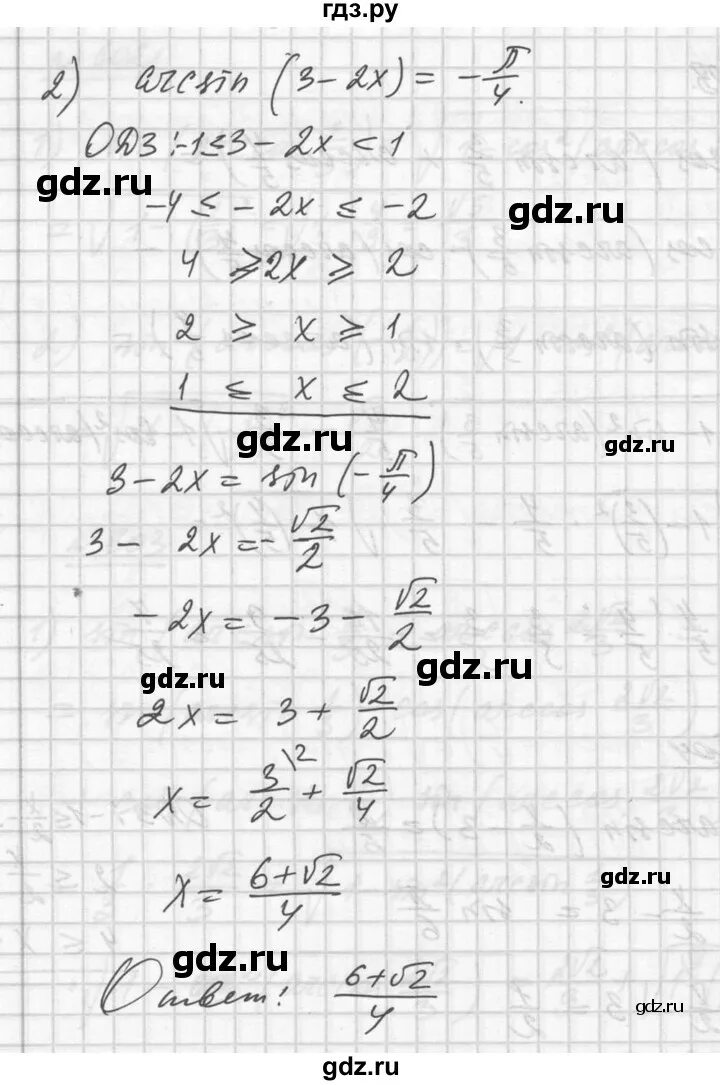 гдз.ру
2) arcsin (3-2x) = -π/4.
ОДЗ: -1≤3-2x<1
gdz.ru
-4 ≤ -2x ≤ -2
gdz.ru
4 ⩾2x ⩾ 2
2 ⩾ x ⩾ 1
1 ≤ x ≤ 2
gdz.ru
gdz.ru
3-2x = sin (-π/4)
3 - 2x = -√2/2
-2x = -3 - √2/2
gdz.ru
gdz.ru
2x = 3 + √2/2
x = 3/2 \2 + √2/4
x = (6+√2)/4
gdz.ru
gdz.ru
Ответ: (6+√2)/4
gdz.ru
gdz.ru